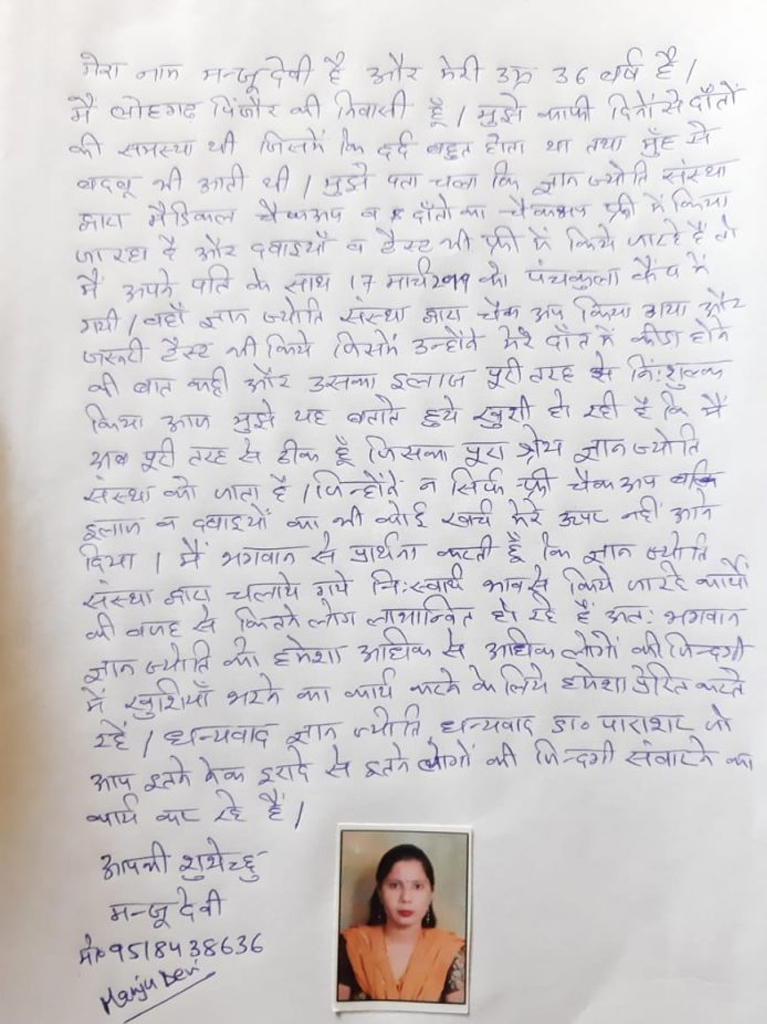 मेरा नाम मन्जू देवी है और मेरी उम्र 36 वर्ष है।
मैं लोहगढ पिंजौर की निवासी हूँ। मुझे काफी दिनों से दाँतों
की समस्या थी जिसमें कि दर्द बहुत होता था तथा मुँह से
बदबू भी आती थी। मुझे पता चला कि ज्ञान ज्योति संस्था
द्वारा मैडिकल चैकअप व दाँतो का चैकअप फ्री में किया
जा रहा है और दवाइयाँ व टैस्ट भी फ्री में किये जा रहे हैं तो
मैं अपने पति के साथ 17 मार्च को पंचकुला कैंप में
गयी। वहाँ ज्ञान ज्योति संस्था द्वारा चैक अप किया गया और
जरूरी टैस्ट भी किये जिसमें उन्होंने मेरे दाँत में कीडा होने
की बात कही और उसका इलाज पूरी तरह से नि:शुल्क
किया आज मुझे यह बताते हुये खुशी हो रही है कि मैं
अब पूरी तरह से ठीक हूँ जिसका पूरा श्रेय ज्ञान ज्योति
संस्था को जाता है। जिन्होंने न सिर्फ फ्री चैकअप बल्कि
इलाज व दवाइयों का भी कोई खर्च मेरे ऊपर नहीं आने
दिया। मैं भगवान से प्रार्थना करती हूँ कि ज्ञान ज्योति
संस्था द्वारा चलाये गये नि:स्वार्थ भाव से किये जा रहे कार्यों
की वजह से कितने लोग लाभान्वित हो रहे हैं अत: भगवान
ज्ञान ज्योति को हमेशा अधिक से अधिक लोगों की जिन्दगी
में खुशियाँ भरने का कार्य करने के लिये हमेशा प्रेरित करते
रहें। धन्यवाद ज्ञान ज्योति, धन्यवाद डा० पाराशर जो
आप इतने नेक इरादे से इतने लोगों की जिन्दगी संवारने का
कार्य कर रहे हैं।
आपकी शुभेच्छु
मन्जू देवी
मो० 9518438636
Manju Devi